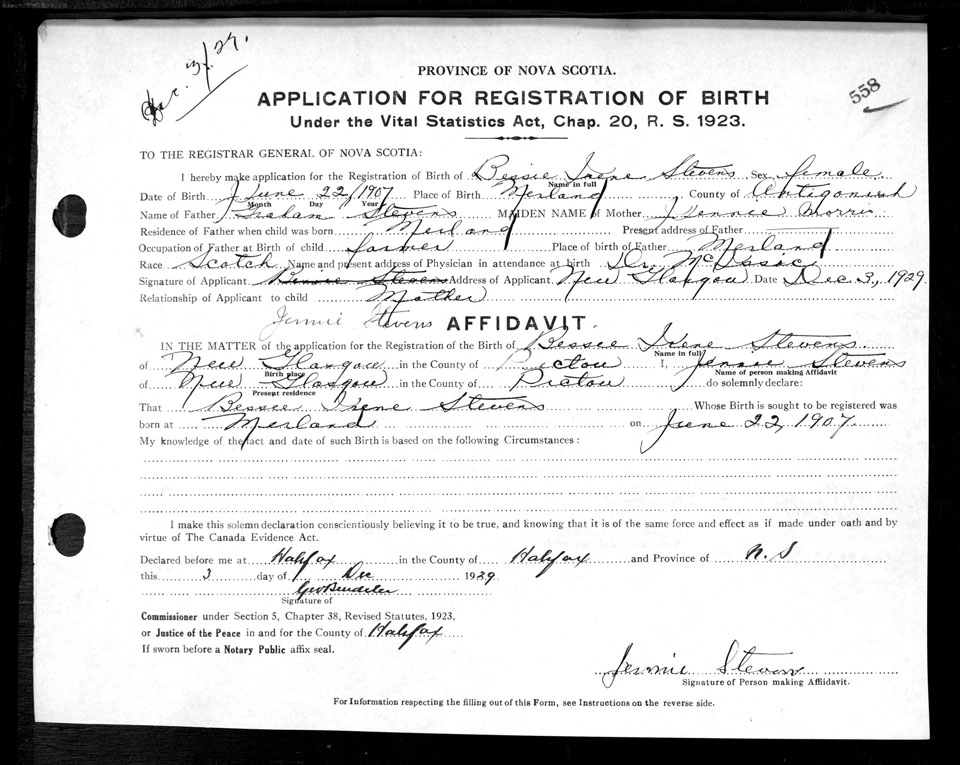 Dec. 3/29.
558
PROVINCE OF NOVA SCOTIA.
APPLICATION FOR REGISTRATION OF BIRTH
Under the Vital Statistics Act, Chap. 20, R. S. 1923.
TO THE REGISTRAR GENERAL OF NOVA SCOTIA:
I hereby make application for the Registration of Birth of Bessie Irene Stevens Sex female
Name in full
Date of Birth June 22/1907 Place of Birth Merland County of Antigonish
Month Day Year
Name of Father Graham Stevens MAIDEN NAME of Mother Jennie Morris
Residence of Father when child was born Merland Present address of Father
Occupation of Father at Birth of child farmer Place of birth of Father Merland
Race Scotch Name and present address of Physician in attendance at birth Dr.
Signature of Applicant Stevens Address of Applicant New Glasgow Date Dec. 3, 1929.
Relationship of Applicant to child Mother
Jennie Stevens AFFIDAVIT.
IN THE MATTER of the application for the Registration of the Birth of Bessie Irene Stevens
Name in full
of New Glasgow in the County of Pictou I, Jennie Stevens
Birth place Name of person making Affidavit
of New Glasgow in the County of Pictou do solemnly declare:
Present residence
That Bessie Irene Stevens Whose Birth is sought to be registered was
born at Merland on June 22, 1907.
My knowledge of the fact and date of such Birth is based on the following Circumstances:
I make this solemn declaration conscientiously believing it to be true, and knowing that it is of the same force and effect as if made under oath and by
virtue of The Canada Evidence Act.
Declared before me at Halifax in the County of Halifax and Province of N. S
this 3 day of Dec 1929
Signature of
Commissioner under Section 5, Chapter 38, Revised Statutes, 1923,
or Justice of the Peace in and for the County of Halifax
If sworn before a Notary Public affix seal.
Jennie Stevens
Signature of Person making Affidavit.
For Information respecting the filling out of this Form, see Instructions on the reverse side.